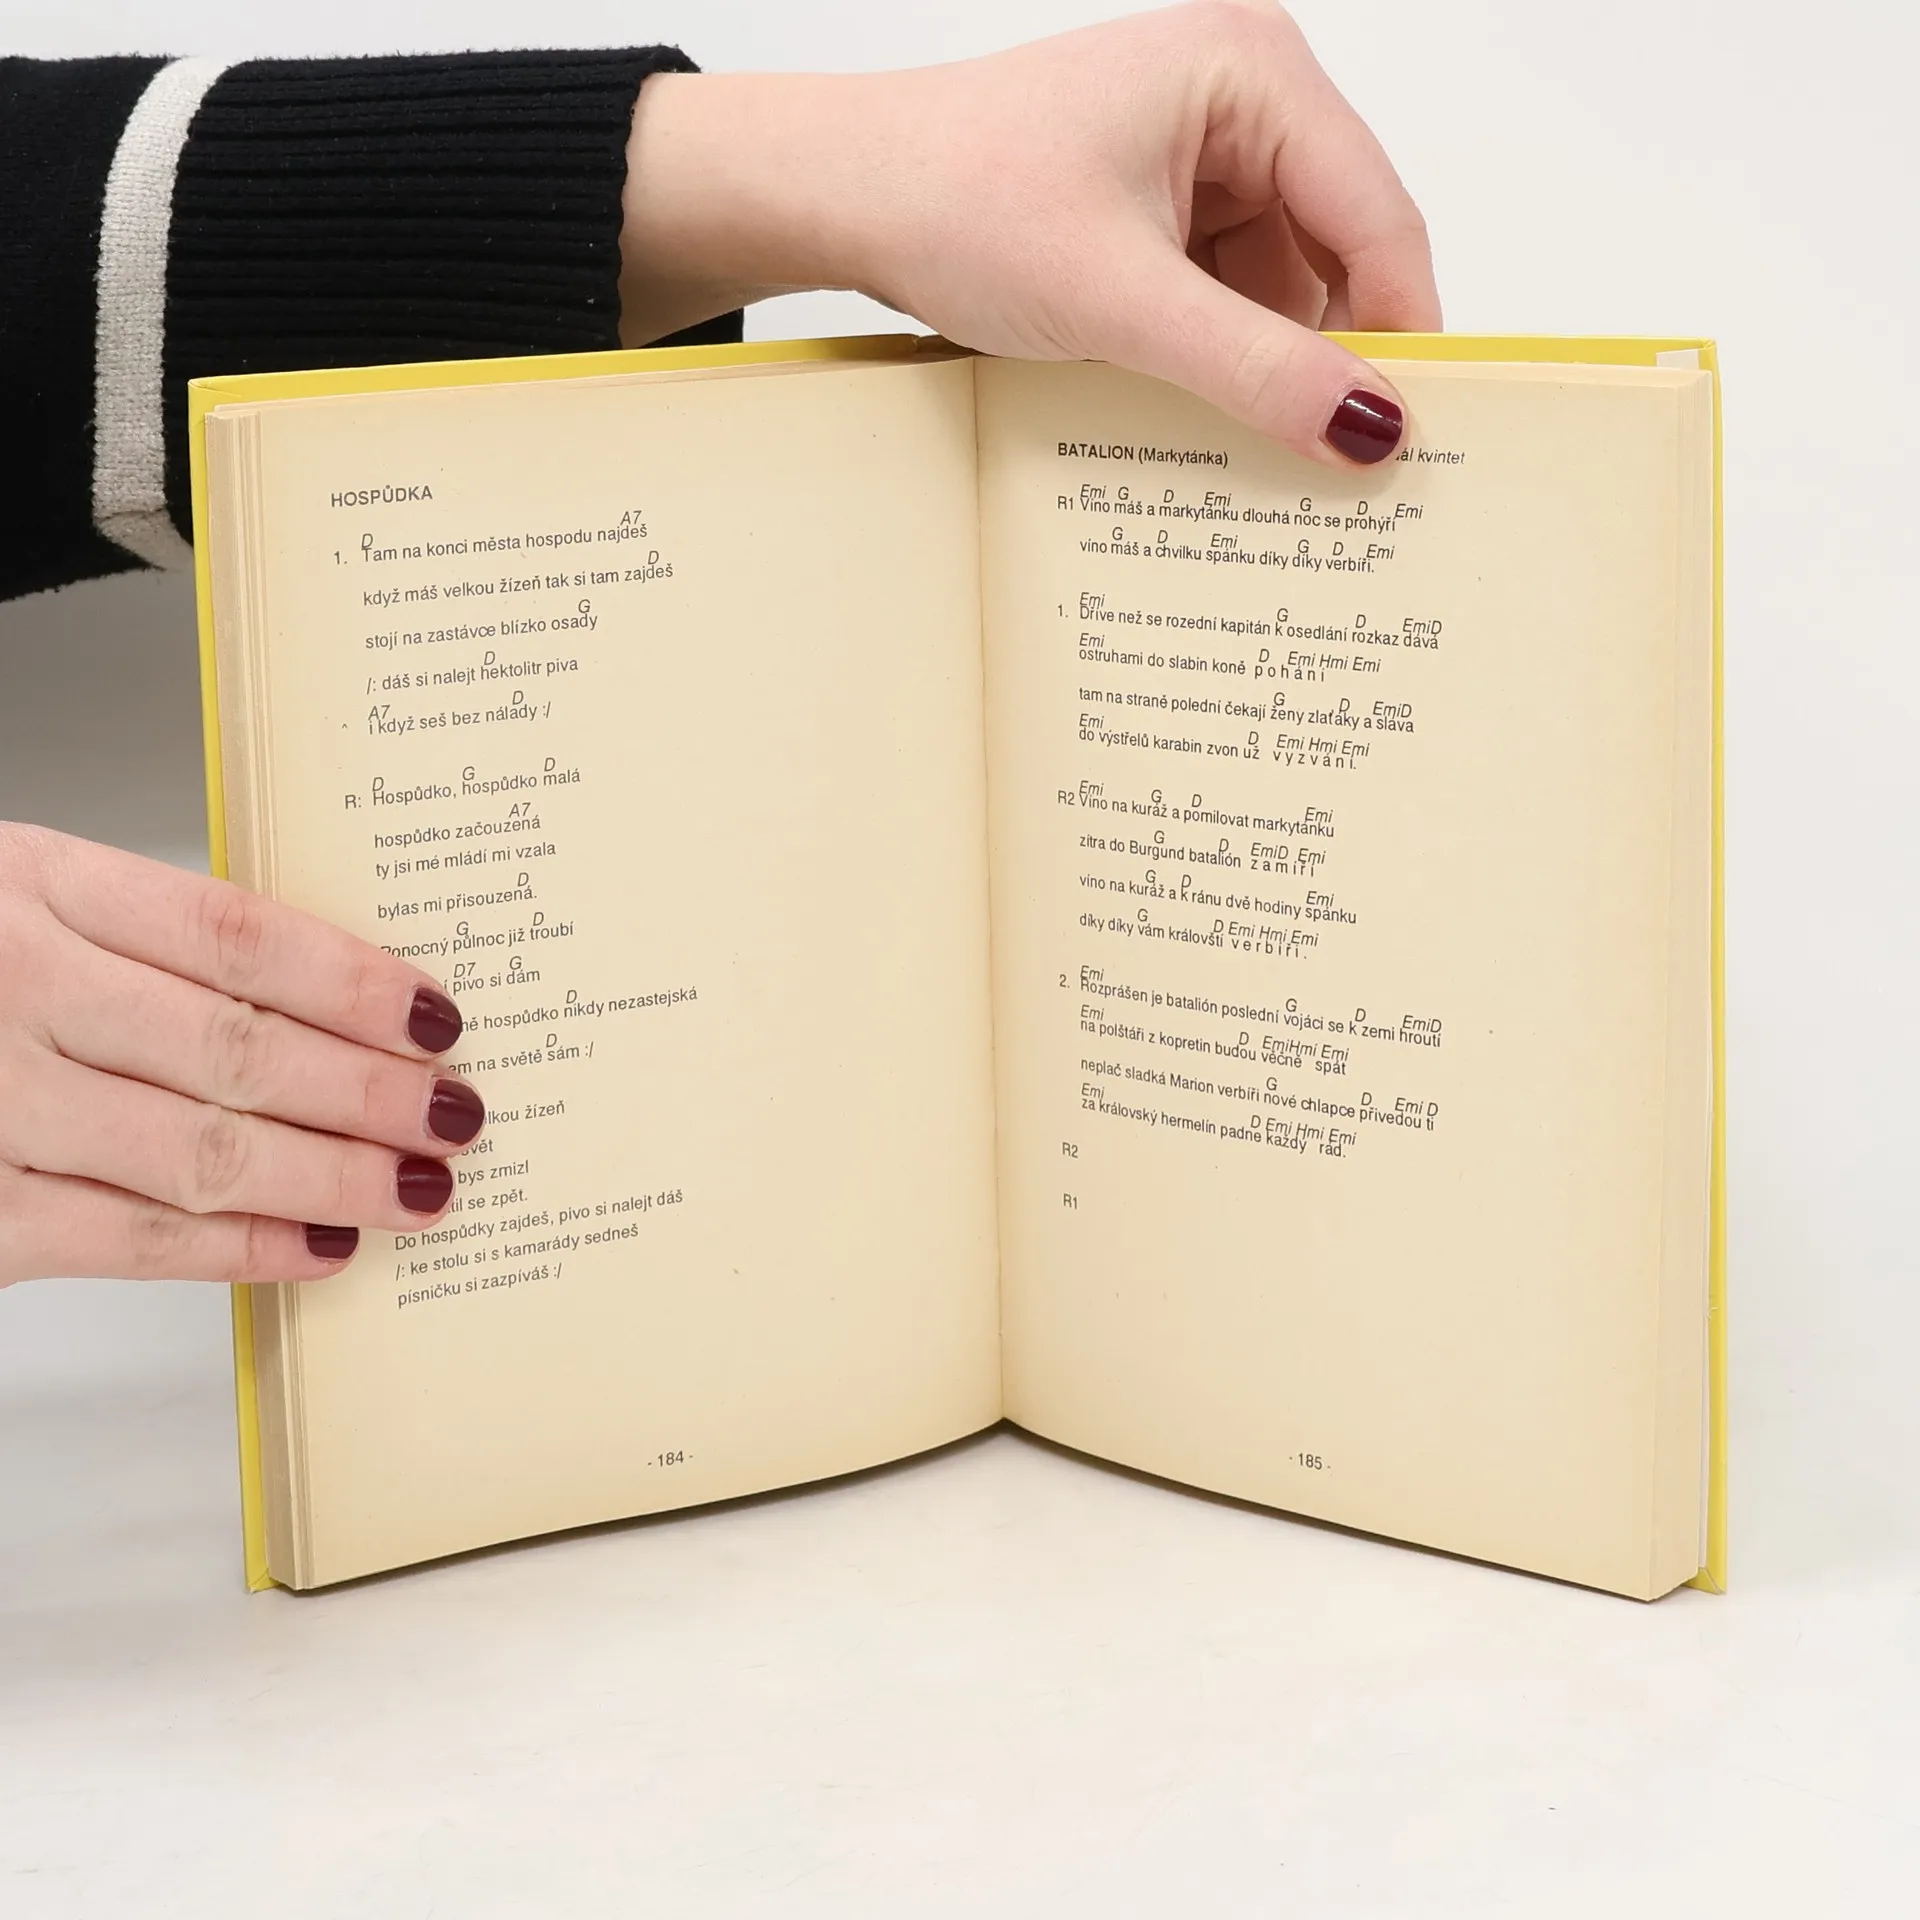 HOSPŮDKA
D A7
1. Tam na konci města hospodu najdeš
D
když máš velkou žízeň tak si tam zajdeš
G
stojí na zastávce blízko osady
D
/: dáš si nalejt hektolitr piva
A7 D
i když seš bez nálady :/
D G D
R: Hospůdko, hospůdko malá
A7
hospůdko začouzená
ty jsi mé mládí mi vzala
D
bylas mi přisouzená.
G D
Ponocný půlnoc již troubí
D7 G
pivo si dám
D
hospůdko nikdy nezastejská
D
na světě sám :/
žízeň
bys zmizl
se zpět.
Do hospůdky zajdeš, pivo si nalejt dáš
/: ke stolu si s kamarády sedneš
písničku si zazpíváš :/
- 184 -
BATALION (Markytánka) kvintet
Emi G D Emi G D Emi
R1 Víno máš a markytánku dlouhá noc se prohýří
G D Emi G D Emi
víno máš a chvilku spánku díky díky verbíři.
Emi G D EmiD
1. Dříve než se rozední kapitán k osedlání rozkaz dává
Emi D Emi Hmi Emi
ostruhami do slabin koně p o h á n í
G D EmiD
tam na straně polední čekají ženy zlaťáky a sláva
Emi D Emi Hmi Emi
do výstřelů karabin zvon už v y z v á n í.
Emi G D Emi
R2 Víno na kuráž a pomilovat markytánku
G D EmiD Emi
zítra do Burgund batalión z a m í ř í
G D Emi
víno na kuráž a k ránu dvě hodiny spánku
G D Emi Hmi Emi
díky díky vám královští v e r b í ř i .
Emi G D EmiD
2. Rozprášen je batalión poslední vojáci se k zemi hroutí
Emi D EmiHmi Emi
na polštáři z kopretin budou věčně spát
G D Emi D
neplač sladká Marion verbíři nové chlapce přivedou ti
Emi D Emi Hmi Emi
za královský hermelín padne každý rád.
R2
R1
- 185 -